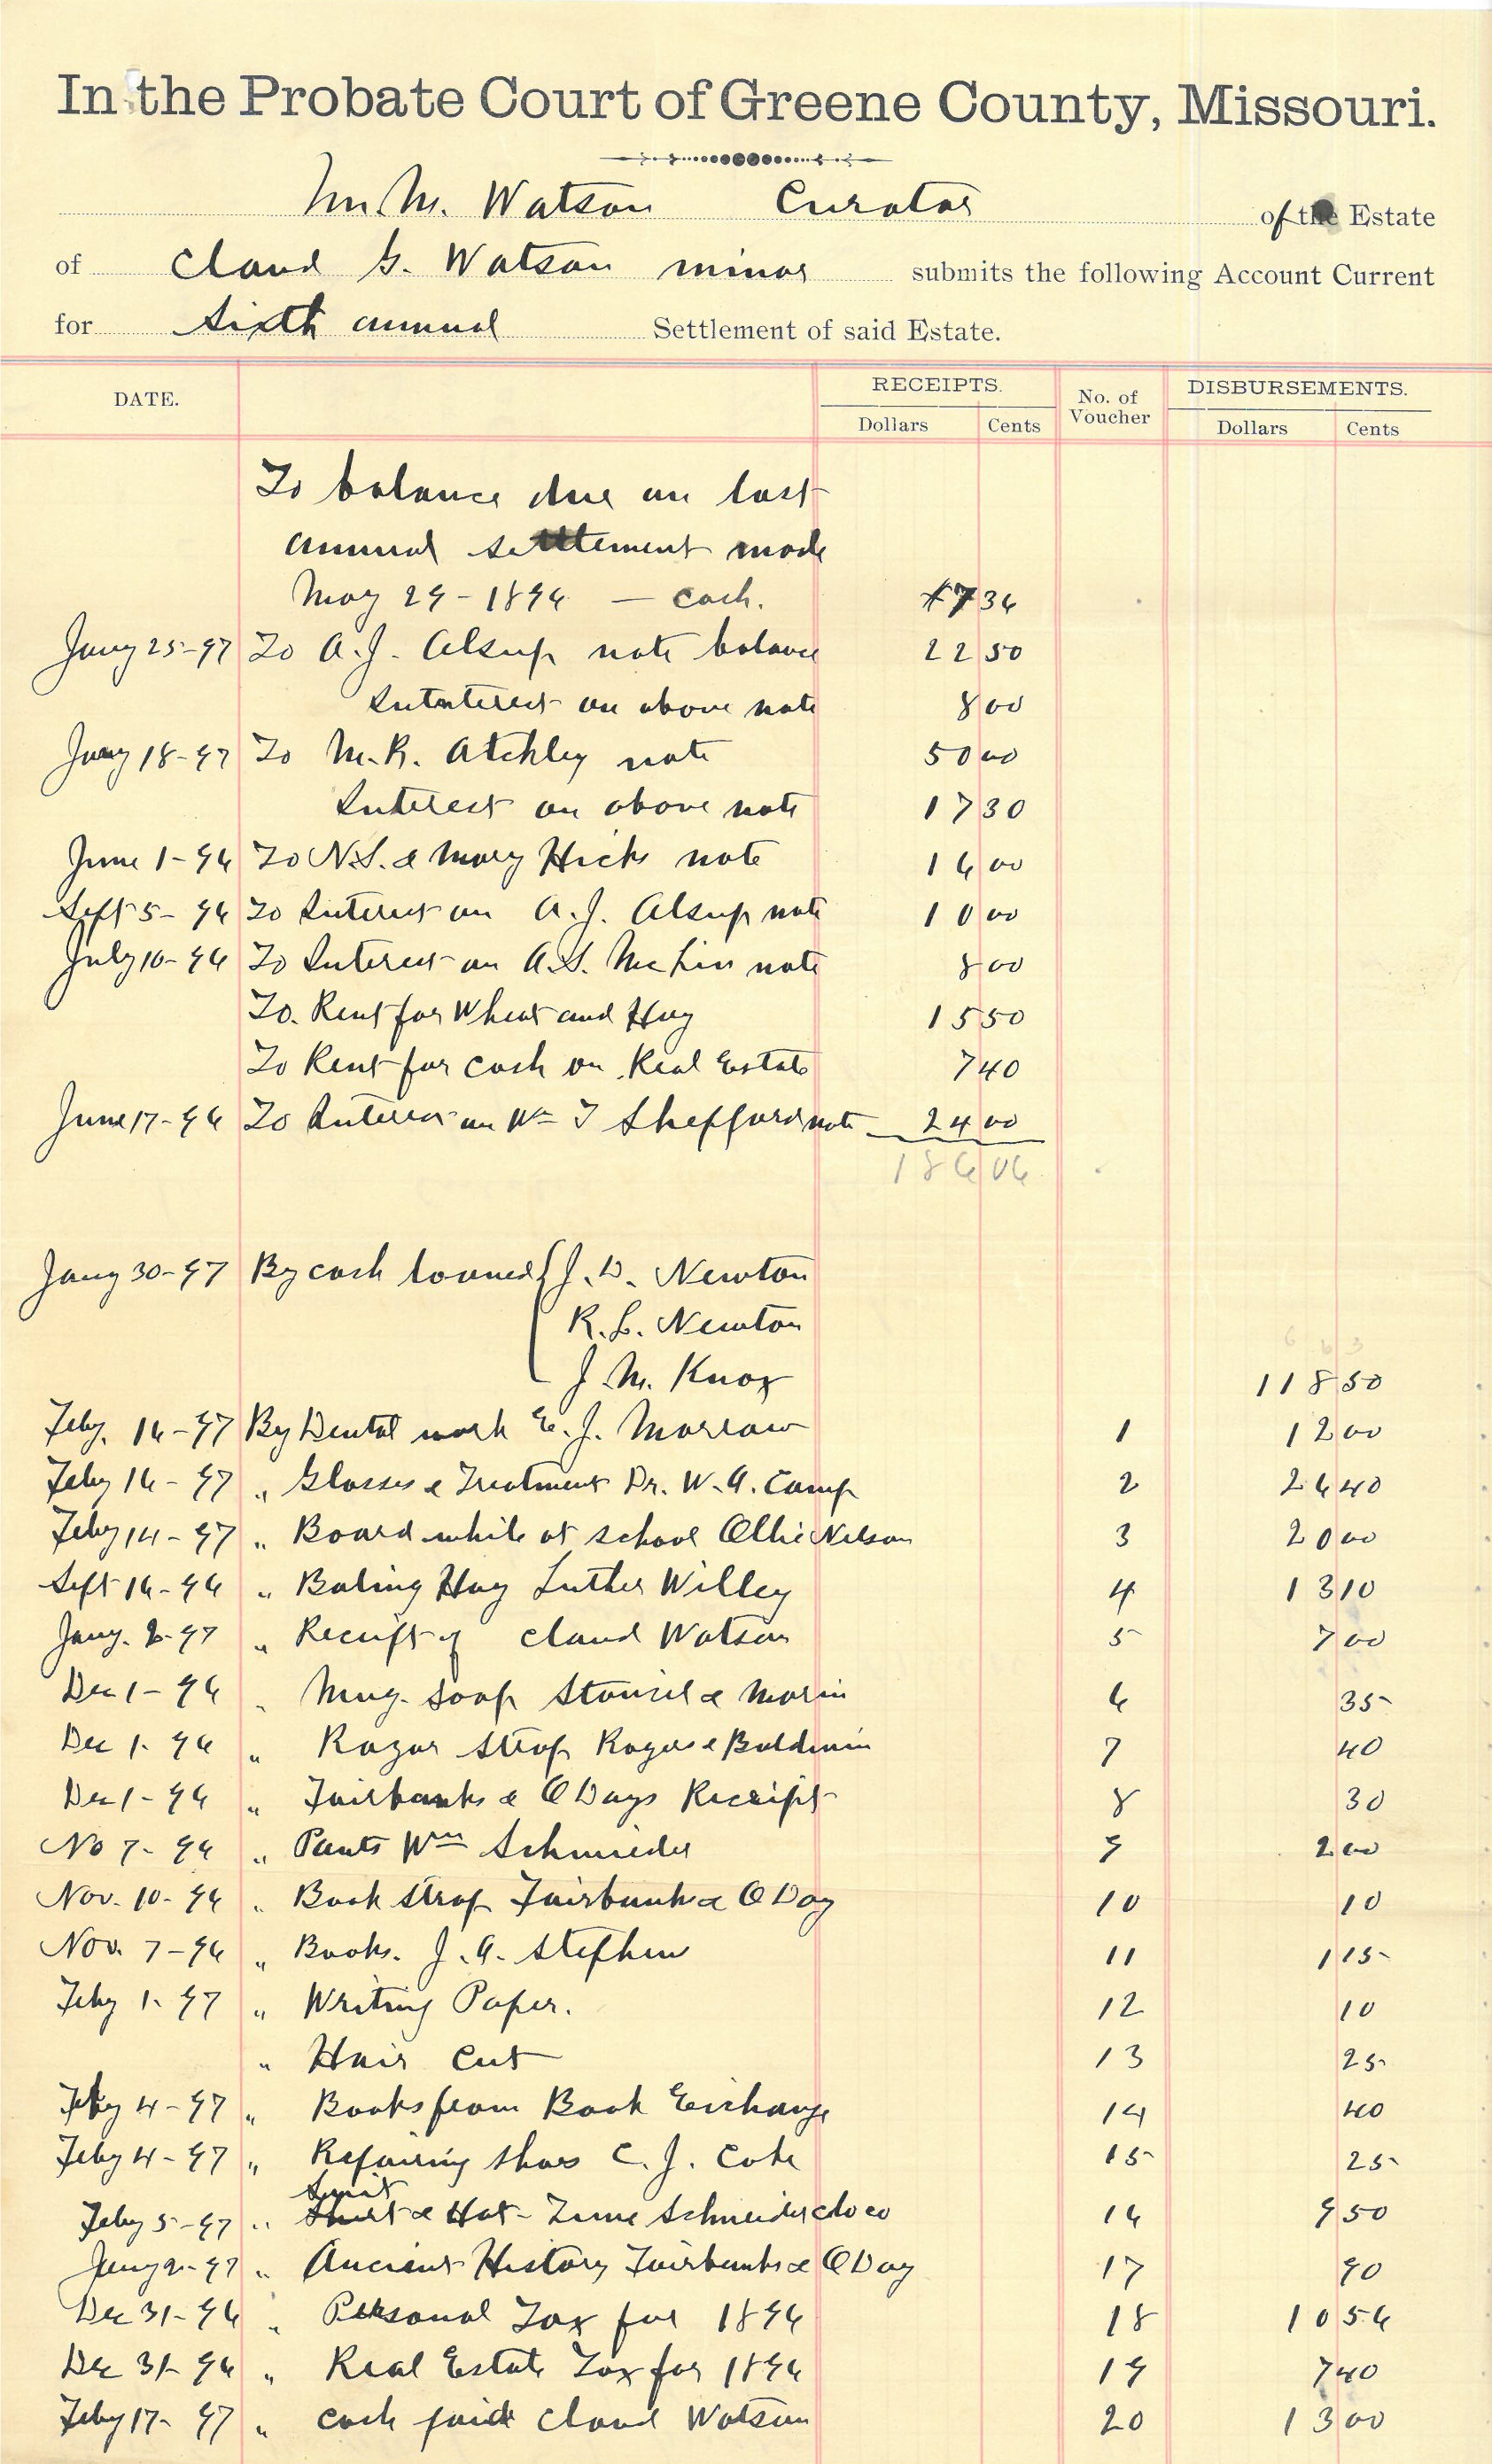 In the Probate Court of Greene County, Missouri.
Wm. M. Watson Curator of the Estate
of Claud G. Watson minor submits the following Account Current
for Sixth annual Settlement of said Estate.
DATE. RECEIPTS. No. of Voucher DISBURSEMENTS.
Dollars Cents Dollars Cents
To balance due on last
annual settlement made
May 29-1896 - cash. 7 36
Jany 25-97 To A.J. Alsup note balance 22 50
Intterest on above note 8 00
Jany 18-97 To M.R. Atchley note 50 00
Interest on above note 17 30
June 1-96 To N.S. & Mary Hicks note 16 00
Sept 5-96 To Interest on A.J. Alsup note 10 00
July 10-96 To Interest on A.S. note 8 00
To. Rent for Wheat and Hay 15 50
To Rent for cash on Real Estate 7 40
June 17-96 To Interest on Wm T Shefford note 24 00
186 06
Jany 30-97 By cash loaned { J.D. Newton
R.L. Newton
J.M. Knox 118 50
Feby. 16-97 By Dental work E.J. Morrow 1 12 00
Feby 16-97 " Glasses & Treatment Dr. W.A. Camp 2 26 40
Feby 14-97 " Board while at school Ollie Nelson 3 20 00
Sept 16-96 " Baling Hay Luther Willey 4 13 10
Jany. 2-97 " Receipt of Claud Watson 5 7 00
Dec 1-96 " Mug. Soap & Morin 6 35
Dec 1-96 " Razor Strop Rogers & Baldwin 7 40
Dec 1-96 " Fairbanks & O Days Receipt 8 30
No 7-96 " Pants Wm Schmieder 9 2 00
Nov. 10-96 " Book Strap Fairbank & O Day 10 10
Nov. 7-96 " Books. J.A. Stephen 11 1 15
Feby 1-97 " Writing Paper. 12 10
" Hair Cut 13 25
Feby 4-97 " Books from Book Exchange 14 40
Feby 4-97 " Repairing Shoes C.J. Cobe 15 25
Suit
Feby 5-97 " Shirt & Hat - Schneider clo co 16 9 50
Jany 2-97 " Ancient History Fairbanks & O Day 17 90
Dec 31-96 " Personal Tax for 1896 18 10 56
Dec 31-96 " Real Estate Tax for 1896 19 7 40
Feby 17-97 " cash paid Claud Watson 20 13 00